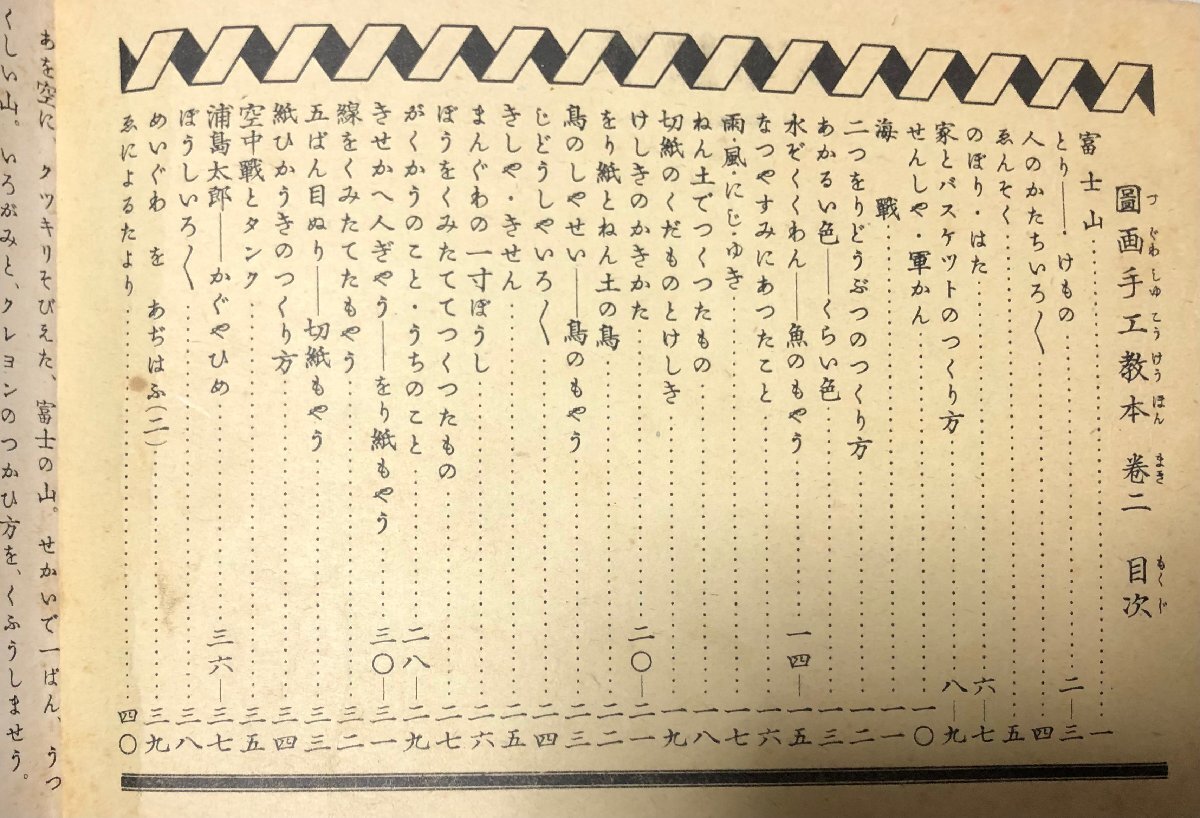 圖画手工教本 卷二 目次
づぐわしゆこうけうほん まき もくじ
富士山……一
とり——・けもの……二—三
人のかたちいろ〱……四
ゑんそく……五
のぼり・はた……六—七
家とバスケツトのつくり方……八—九
せんしや・軍かん……一〇
海 戰……一一
二つをりどうぶつのつくり方……一二
あかるい色——くらい色……一三
水ぞくくわん——魚のもやう……一四—一五
なつやすみにあつたこと……一六
雨・風・にじ・ゆき……一七
ねん土でつくつたもの……一八
切紙のくだものとけしき……一九
けしきのかきかた……二〇—二一
をり紙とねん土の鳥……二二
鳥のしやせい——鳥のもやう……二三
じどうしやいろ〱……二四
きしや・きせん……二五
まんぐわの一寸ぼうし……二六
ぼうをくみたててつくつたもの……二七
がくかうのこと・うちのこと……二八—二九
きせかへ人ぎやう——をり紙もやう……三〇—三一
線をくみたてたもやう……三二
五ばん目ぬり——切紙もやう……三三
紙ひかうきのつくり方……三四
空中戰とタンク……三五
浦島太郎——かぐやひめ……三六—三七
ぼうしいろ〱……三八
めいぐわ を あぢはふ(二)……三九
ゑによるたより……四〇
あを空に、クツキリそびえた、富士の山。せかいで一ばん、うつ
くしい山。いろがみと、クレヨンのつかひ方を、くふうしませう。